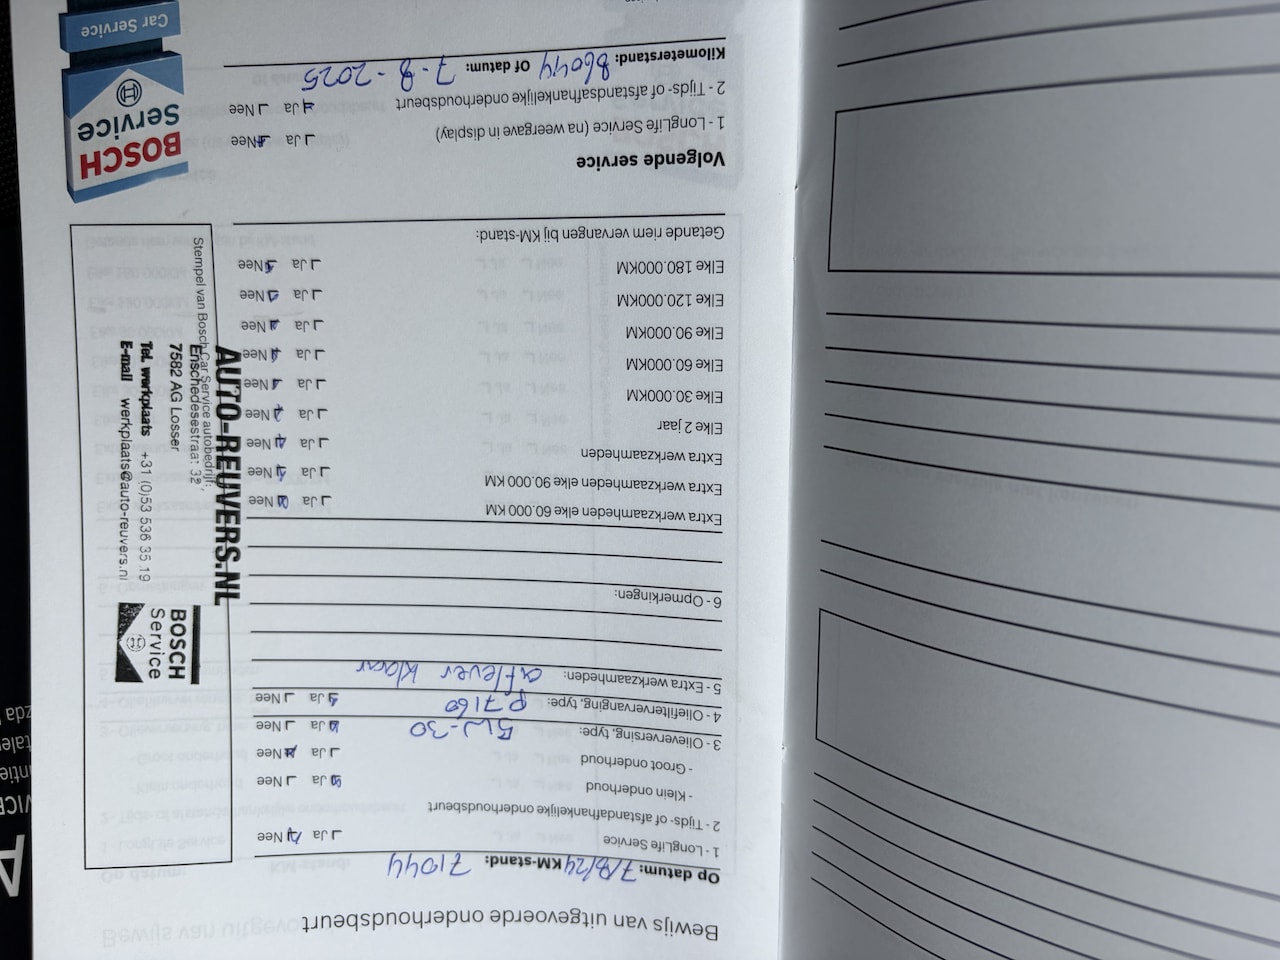 Bewijs van uitgevoerde onderhoudsbeurt
Op datum: 7/8/24 KM-stand: 71044
1 - LongLife Service Ja Nee
2 - Tijds- of afstandafhankelijke onderhoudsbeurt
- Klein onderhoud Ja Nee
- Groot onderhoud Ja Nee
3 - Olieverversing, type: 5W-30 Ja Nee
4 - Oliefiltervervanging, type: P 7160 Ja Nee
5 - Extra werkzaamheden: aflever klaar
6 - Opmerkingen:
Extra werkzaamheden elke 60.000 KM Ja Nee
Extra werkzaamheden elke 90.000 KM Ja Nee
Extra werkzaamheden Ja Nee
Elke 2 jaar Ja Nee
Elke 30.000KM Ja Nee
Elke 60.000KM Ja Nee
Elke 90.000KM Ja Nee
Elke 120.000KM Ja Nee
Elke 180.000KM Ja Nee
Getande riem vervangen bij KM-stand:
BOSCH
Service
AUTO-REUVERS.NL
Stempel van Bosch Car Service autobedrijf:
Enschedesestraat 32
7582 AG Losser
Tel. werkplaats +31 (0)53 536 35 19
E-mail werkplaats@auto-reuvers.nl
Volgende service
1 - LongLife Service (na weergave in display) Ja Nee
2 - Tijds- of afstandsafhankelijke onderhoudsbeurt Ja Nee
Kilometerstand: 86044 Of datum: 7-8-2025
BOSCH
Service
Car Service